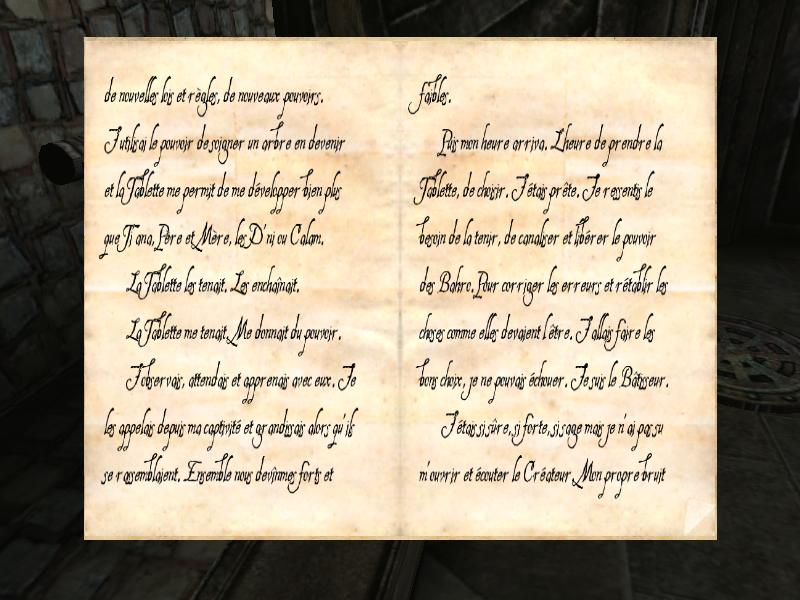 de nouvelles lois et règles, de nouveaux pouvoirs.
J'utilisai le pouvoir de soigner un arbre en devenir
et la Tablette me permit de me développer bien plus
que Ti'ana, Père et Mère, les D'ni ou Calam.
La Tablette les tenait. Les enchaînait.
La Tablette me tenait. Me donnait du pouvoir.
J'observais, attendais et apprenais avec eux. Je
les appelais depuis ma captivité et grandissais alors qu'ils
se rassemblaient. Ensemble nous devînmes forts et
faibles.
Puis mon heure arriva. L'heure de prendre la
Tablette, de choisir. J'étais prête. Je ressentis le
besoin de la tenir, de canaliser et libérer le pouvoir
des Bahro. Pour corriger les erreurs et rétablir les
choses comme elles devaient l'être. J'allais faire les
bons choix, je ne pouvais échouer. Je suis le Bâtisseur.
J'étais si sûre, si forte, si sage mais je n'ai pas su
m'ouvrir et écouter le Créateur. Mon propre bruit